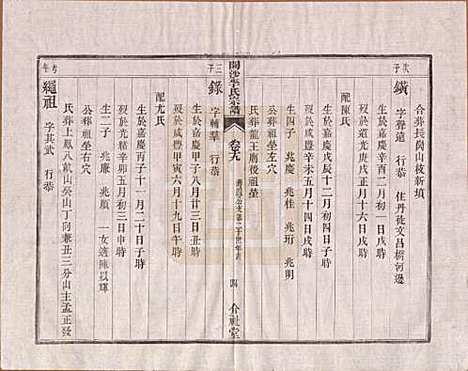 合葬長崗山枝新墳
次子
鑌 字聲遠 行恭 住丹徒文昌樹河邊
生於嘉慶辛酉二月初一日戌時
歿於道光庚戌正月十六日戌時
配陳氏
生於嘉慶辛未十二月初四日子時
歿於咸豐辛亥五月十四日戌時
生四子 兆慶 兆桂 兆珩 兆明
公葬祖塋左穴
氏葬龍王廟後祖塋
開沙李氏宗譜
卷九
四
介祉堂
三子
錄 字輔羣 行恭
生於嘉慶甲子八月廿三日丑時
歿於咸豐甲寅六月十九日午時
配尤氏
生於嘉慶丙子十一月二十日子時
歿於 辛卯五月初三日申時
生二子 兆廉 兆順 一女適陳以輝
公葬祖塋右穴
氏葬上鳳八凱山癸山丁向兼丑三分山主孟正發
繩祖 字其武 行恭